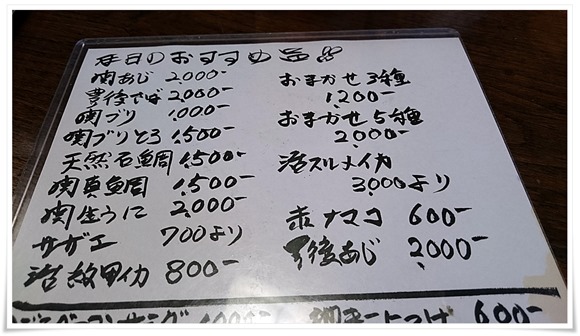 本日のおすすめ品
関あじ 2,000-
豊後さば 2,000-
関ブリ 1,000-
関ブリとろ 1,500-
天然石鯛 1,500-
関真鯛 1,500-
関生うに 2,000-
サザエ 700より
活紋甲イカ 800-
おまかせ3種
1,200-
おまかせ5種
2,000-
活スルメイカ
3,000より
赤ナマコ 600-
豊後あじ 2,000-
600-